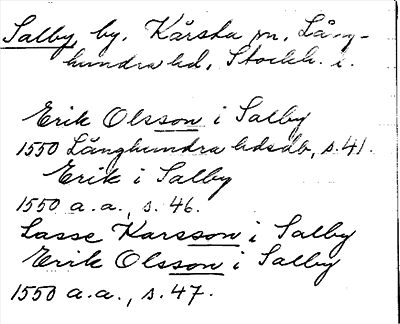 Salby, by. Kårsta sn. Lång-
hundra hd, Stockh. l.
Erik Olsson i Salby
1550 Långhundra hdsdb, s. 41.
Erik i Salby
1550 a.a., s. 46.
Lasse Karsson i Salby
Erik Olsson i Salby
1550 a.a., s. 47.